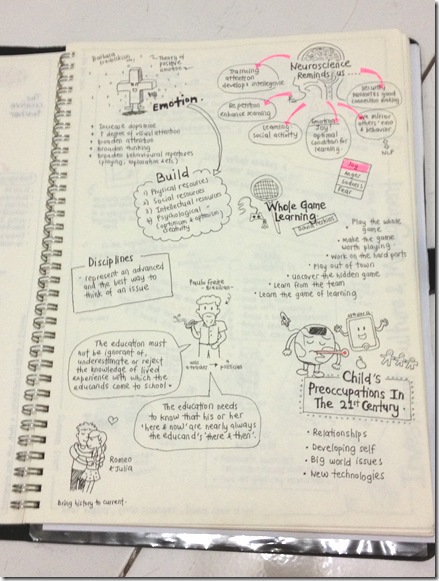 Barbara
Theory of
positive
emotion
+
Emotion
+ Increase dopamine
+ ↑ degree of visual attention
+ Broaden attention
+ Broaden thinking
+ Broaden behavioural repertoires
(playing, exploration & etc.)
Neuroscience
Reminds us ....
Training
attention
develops intelligence
Repetition
enhance learning
Learning =
Social activity
Emotion
Joy =
optimal
condition for
learning
Security
good
making
We mirror
others' emo
& behavior
NLP
Joy
Anger
Sadness
Fear
Build
1) Physical resources
2) Social resources
3) Intellectual resources
4) Psychological "
(optimism & optimism)
creativity
Whole Game
Learning
David Perkins
• Play the whole
game
• make the game
worth playing
• Work on the hard parts
• Play out of town
• uncover the hidden game
• Learn from the team
• Learn the game of learning
Disciplines
• represent an advanced
and the best way to
think of an issue
Paulo Freire
- Brazilian
The education must
not be ignorant of,
underestimate or reject
the knowledge of lived
experience with which the
educands come to school.
The education needs
to know that his or her
'here & now' are nearly always
the educand's 'there & then'.
Romeo
& Julia
Bring history to current.
Child's
Preoccupations In
The 21st Century
• Relationships
• Developing self
• Big world issues
• New technologies